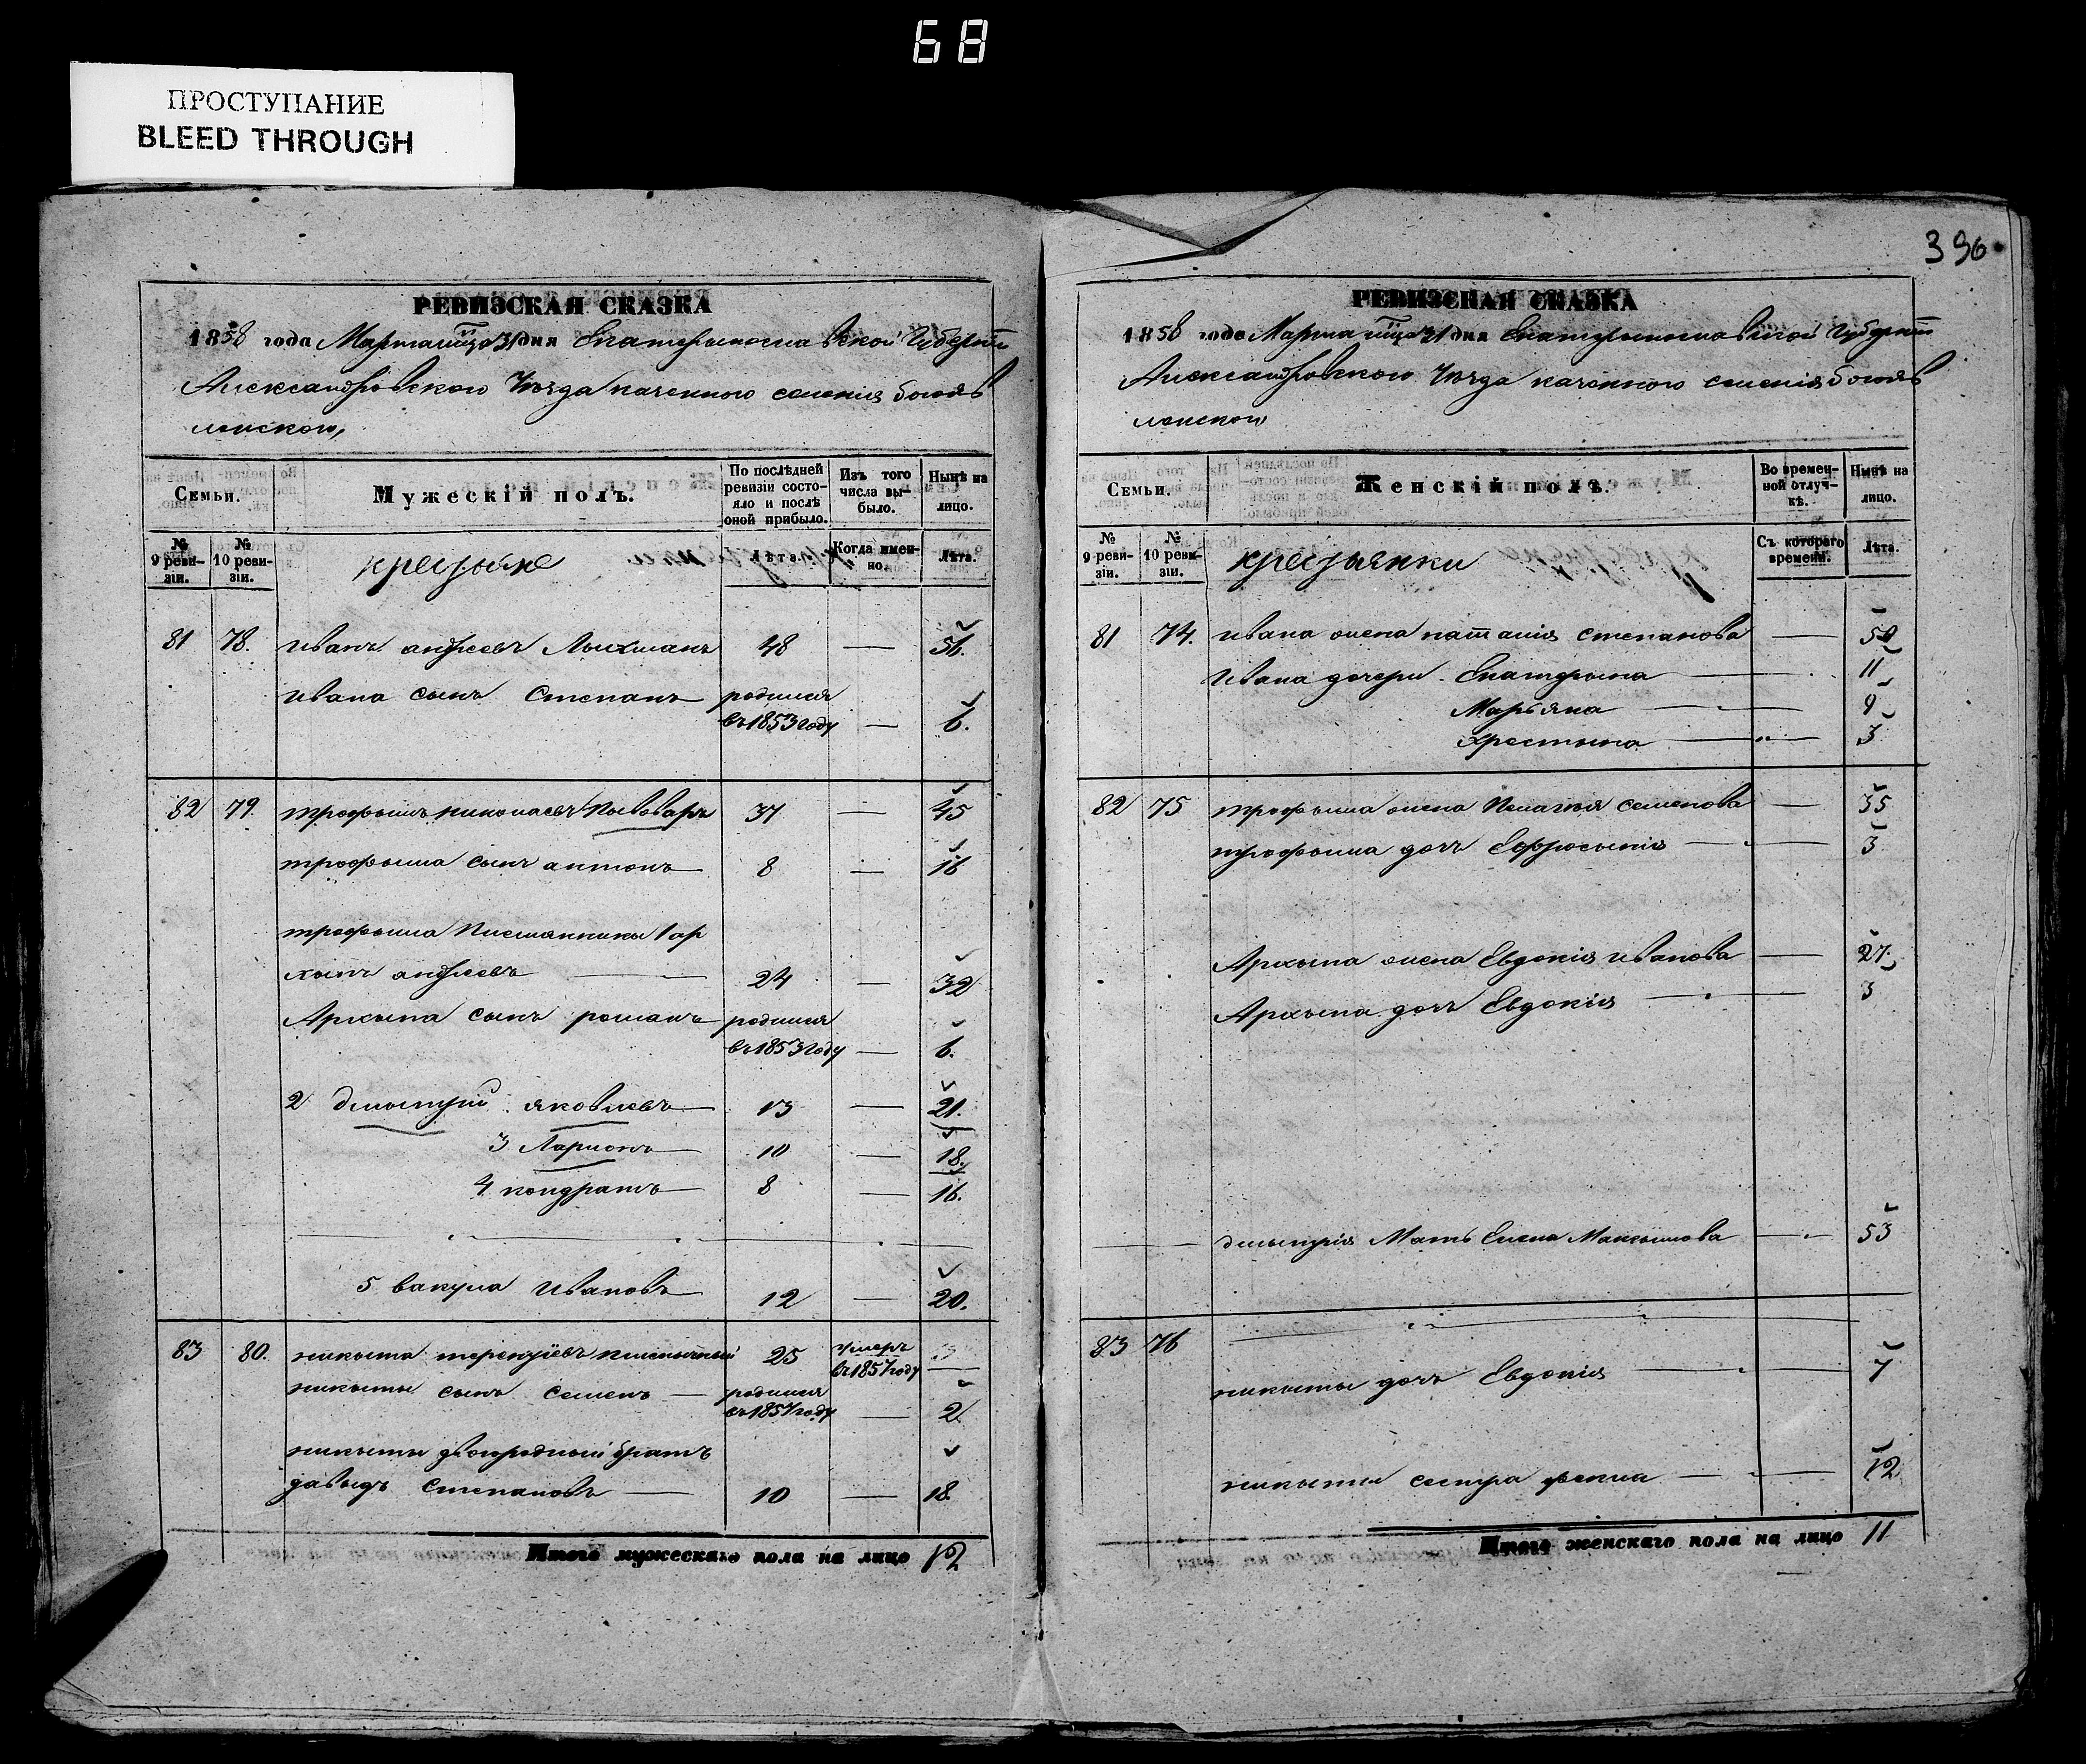 68
ПРОСТУПАНИЕ
BLEED THROUGH
396
РЕВИЗСКАЯ СКАЗКА
1858 года Марта мца 31 дня Екатерынославской Губерніи
Александровскаго Уезда казенного селенія богояв
ленского,
Семьи.
Мужескій полъ.
По послѣдней ревизіи состояло и послѣ оной прибыло.
Изъ того числа выбыло.
Нынѣ на лицо.
№ 9 ревизіи.
№ 10 ревизіи.
крестьяне
Лѣта.
Когда именно.
Лѣта.
81 78. иванъ андреевъ Лыхманъ 48 — 56.
ивана сынъ Степанъ родился
въ 1853 году — 6.
82 79. трофымъ николаевъ Пывоваръ 37 — 45
трофыма сынъ антонъ 8 — 16
трофыма Племянныки 1 ар
хыпъ андреевъ — 24 — 32
Архыпа сынъ романъ родился
въ 1853 году — 6.
2 дмытрій яковлевъ 13 — 21.
3 Ларионъ 10 — 18.
4 кондратъ 8 — 16.
5 вакула Ивановъ 12 — 20.
83 80. никыта терентіевъ пшенычный 25 умеръ
въ 1857 году —
никыты сынъ семенъ — родился
въ 1857 году — 2
никыты двоюродный братъ
давыдъ Степановъ — 10 — 18.
Итого мужескаго пола на лицо 12
РЕВИЗСКАЯ СКАЗКА
1858 года Марта мца 31 дня Екатерынославской Губерніи
Александровского Уезда казенного селенія богояв
ленского
Семьи.
Женскій полъ.
Во временной отлучкѣ.
Нынѣ на лицо.
№ 9 ревизіи.
№ 10 ревизіи.
крестьянки
Съ котораго времени.
Лѣта.
81 74. ивана жена наталія степанова — 50
Ивана дочери Екатерына — 11
Марьяна — 9
Хрестына — 3
82 75 трофыма жена Пелагея семенова — 35
трофыма дочь Ефросынія — 3
Архыпа жена Евдокія иванова — 27.
Архыпа дочь Евдокія — 3
дмытрія Мать Елена Максымова — 53
83 76
никыты дочь Евдокія — 7
никыты сестра фекла — 12
Итого женскаго пола на лицо 11